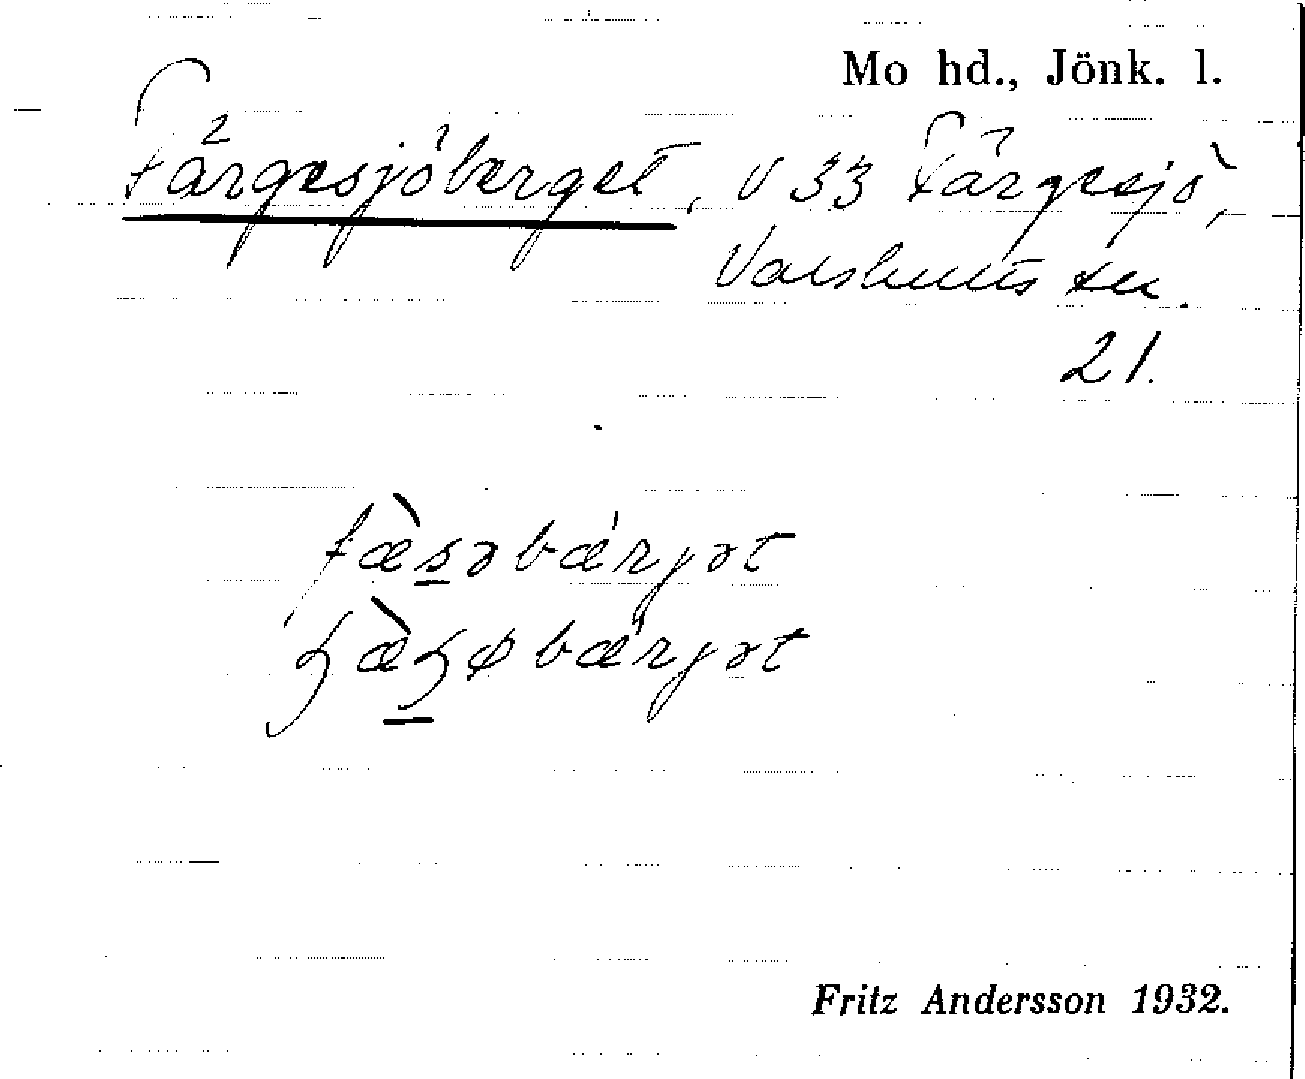 Mo hd., Jönk. l.
Färgesjöberget, V 33 Färgesjö,
Valshults sn.
21.
fæ̀s̲əbærgət
bærgət
Fritz Andersson 1932.